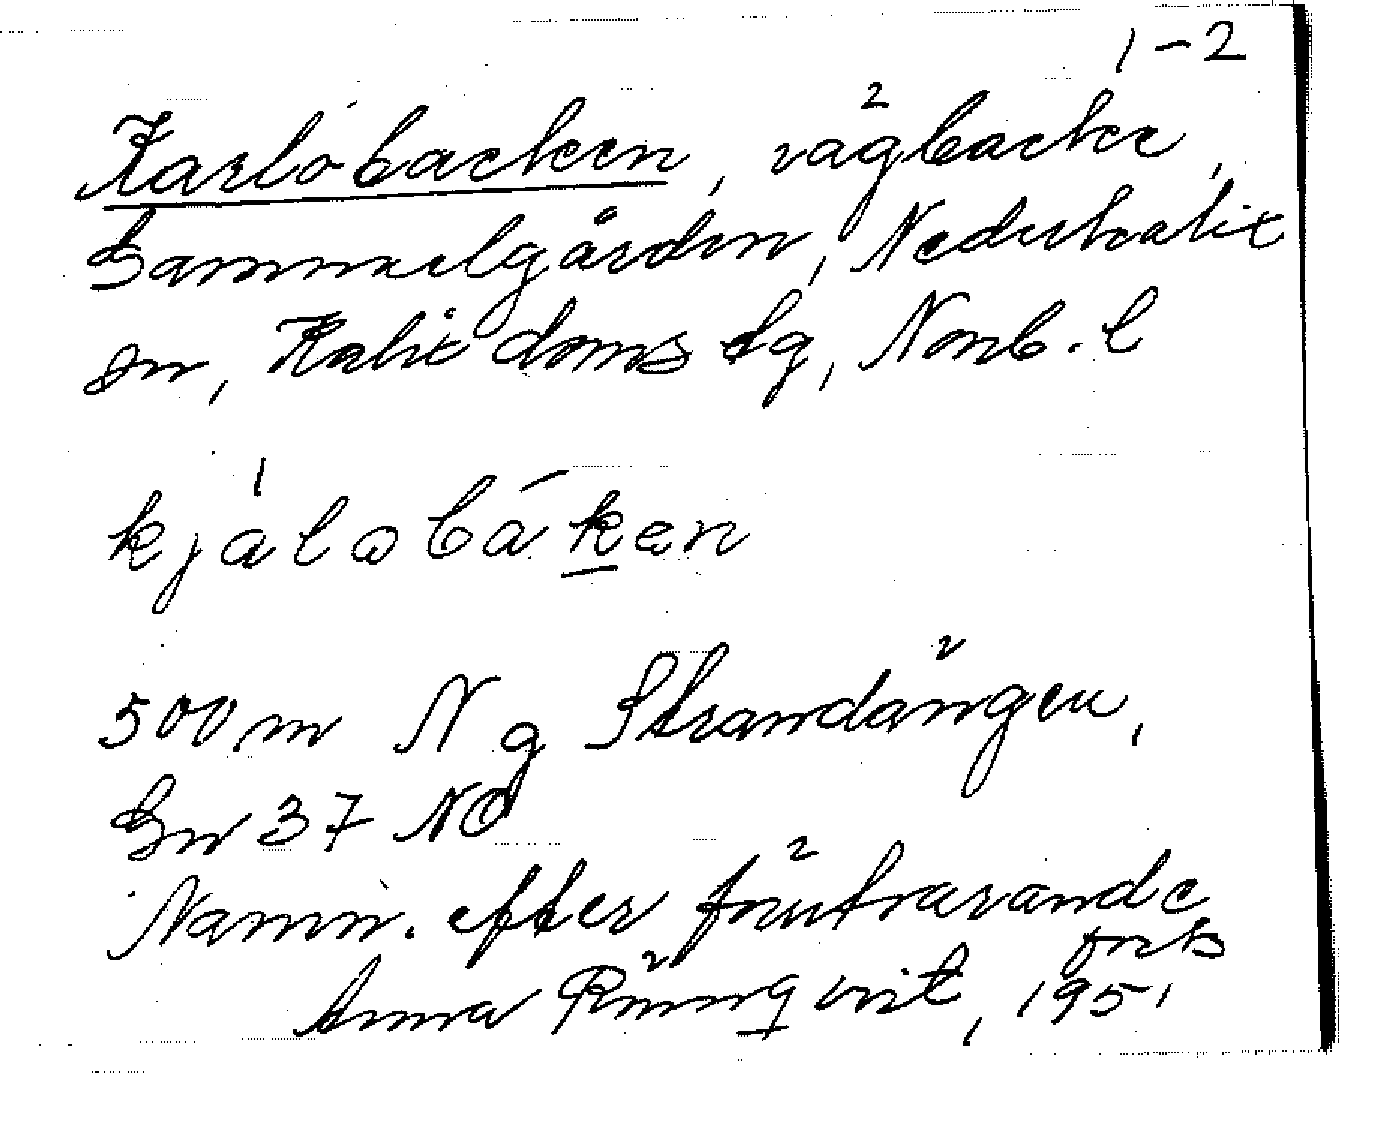 1-2
Karlobacken, vägbacke,
Gammelgården, Nederkalix
sn, Kalix doms dg, Norrb. l
kjálobák̲en
500 m N g Strandängen,
Gn 37 NO
Namn. efter förutvarande
forts
Anna Rönnqvist, 1951